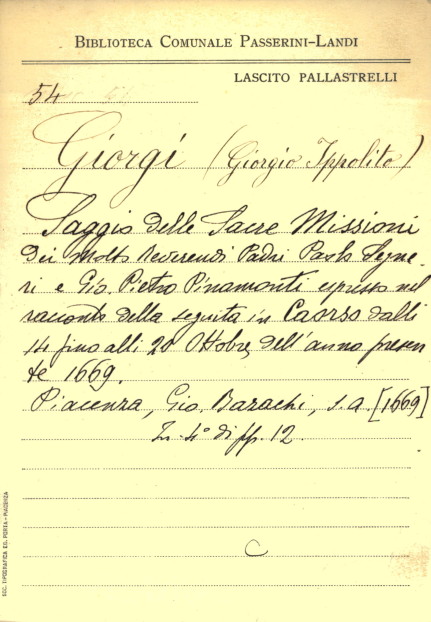 BIBLIOTECA COMUNALE PASSERINI-LANDI
LASCITO PALLASTRELLI
54
Giorgi (Giorgio Ippolito)
Saggio delle Sacre Missioni
dei molto Reverendi Padri Paolo Segne-
ri e Gio. Pietro Pinamonti espresso nel
racconto della seguita in Caorso dalli
14 fino alli 20 Ottobre dell'anno presen
te 1669.
Piacenza, Gio. Bazachi, s. a. [1669]
In 4° di ff. 12.
C
SOC. TIPOGRAFICA ED. PORTA-PIACENZA